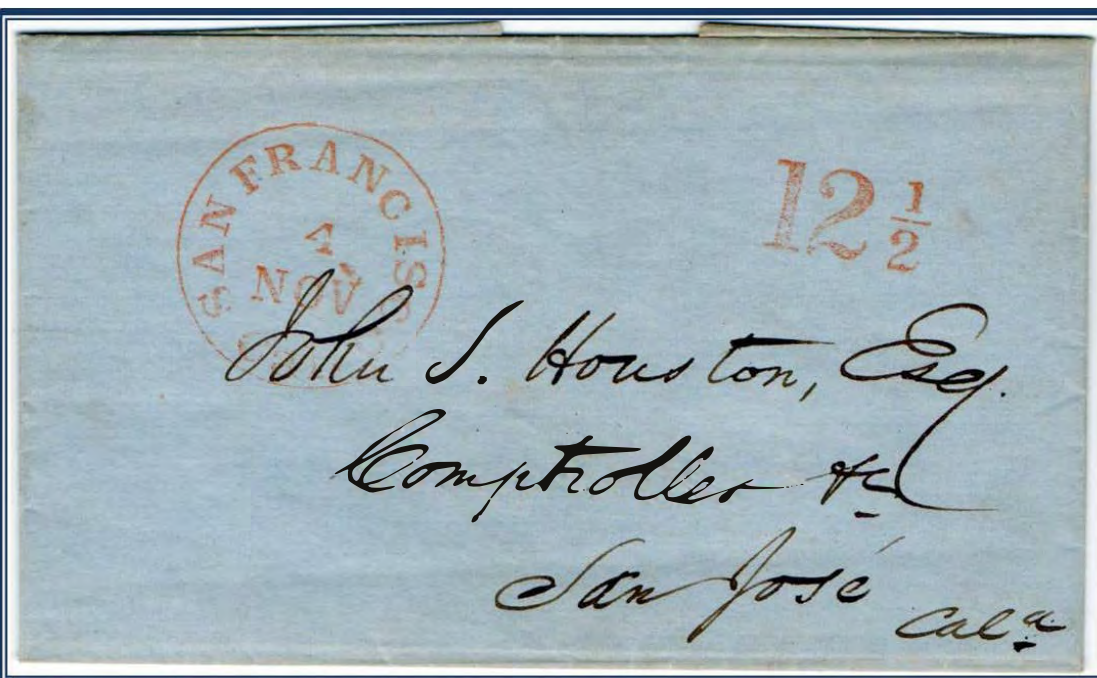 SAN FRANCISCO
1
NOV
12 1/2
John S. Houston, Esq.
Comptroller &c
San José
Cala